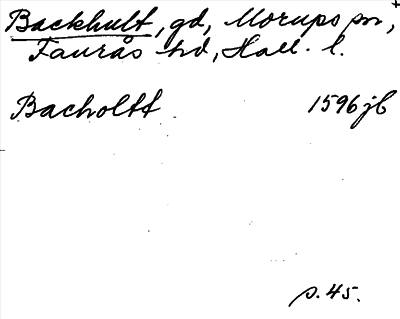 Backhult, gd, Morups sn,
Faurås hd, Hall. l.
Bacholtt 1596 jb
s. 45.